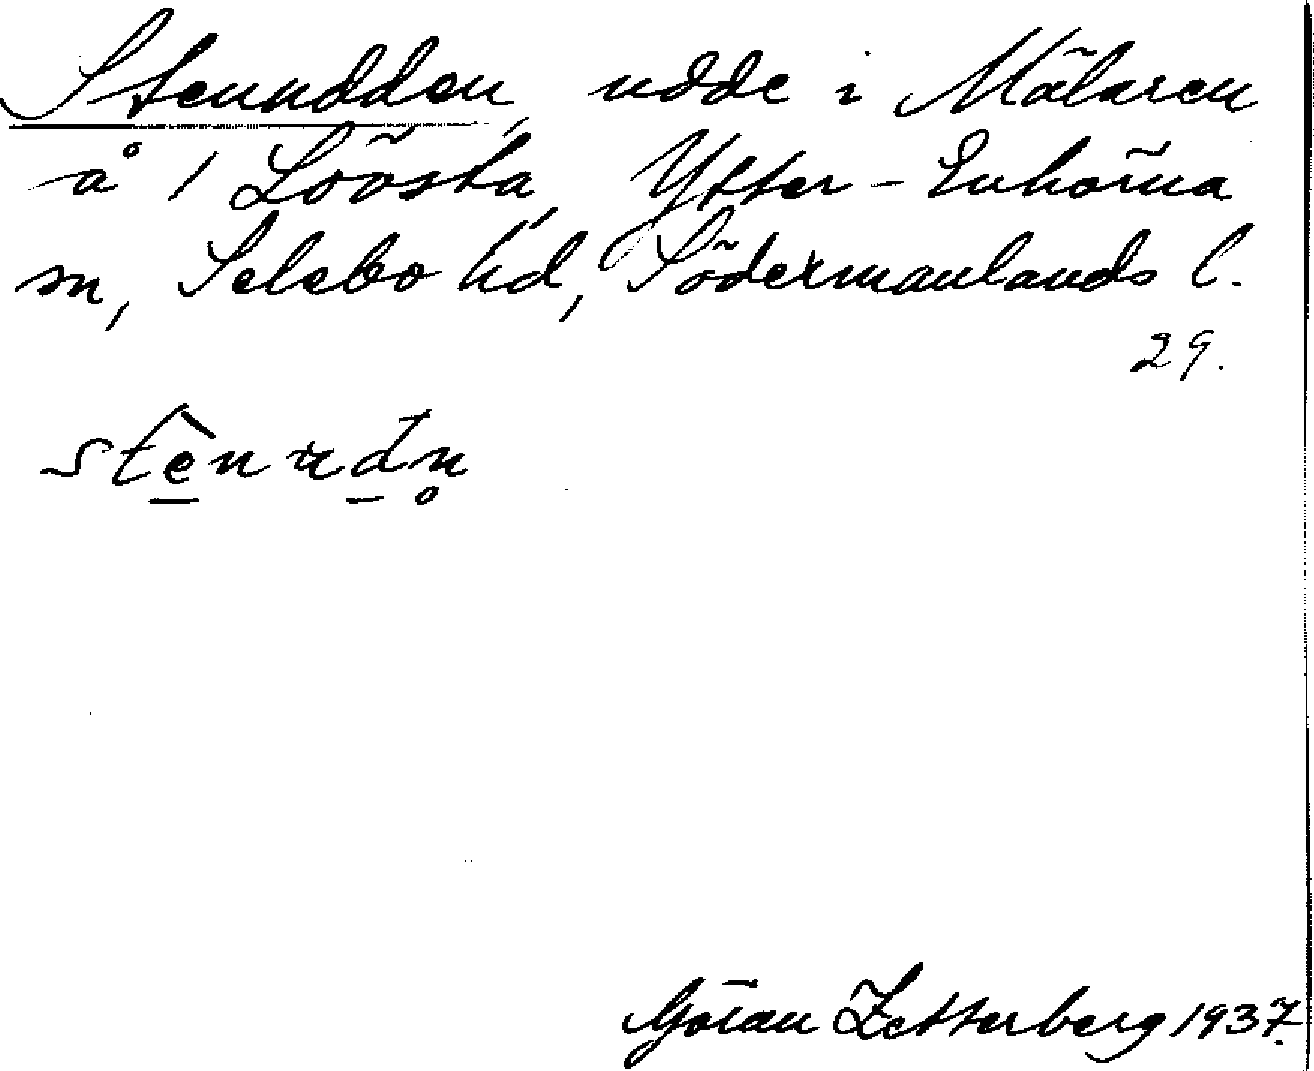 Stenudden, udde i Mälaren
å 1 Lövsta, Ytter-Enhörna
sn, Selebo hd, Södermanlands l.
29.
Göran Zetterberg 1937.